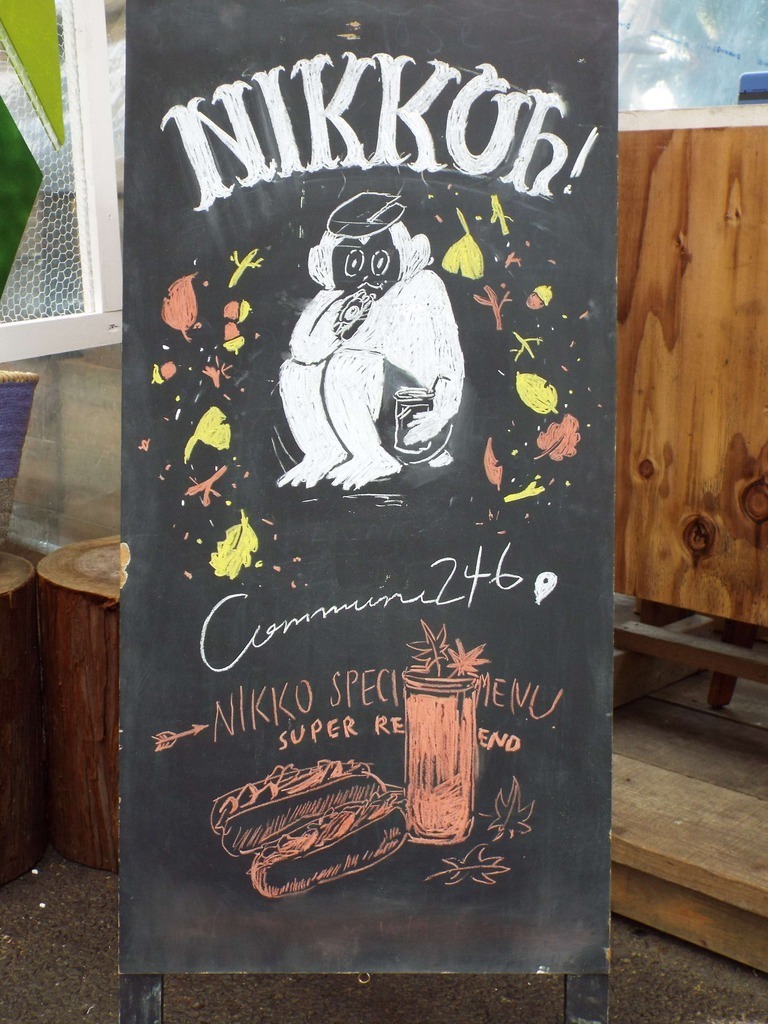 NIKKOh!
Commune 246
NIKKO SPECI MENU
SUPER RE END